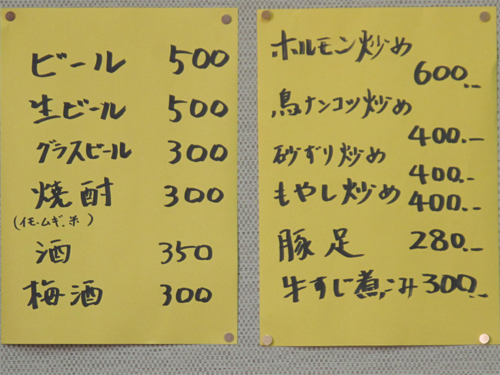 ビール 500
生ビール 500
グラスビール 300
焼酎 300
(イモ、ムギ、米)
酒 350
梅酒 300
ホルモン炒め
600.-
鳥ナンコツ炒め
400.-
砂ずり炒め 400.-
もやし炒め 400.-
豚足 280.-
牛すじ煮こみ 300.-